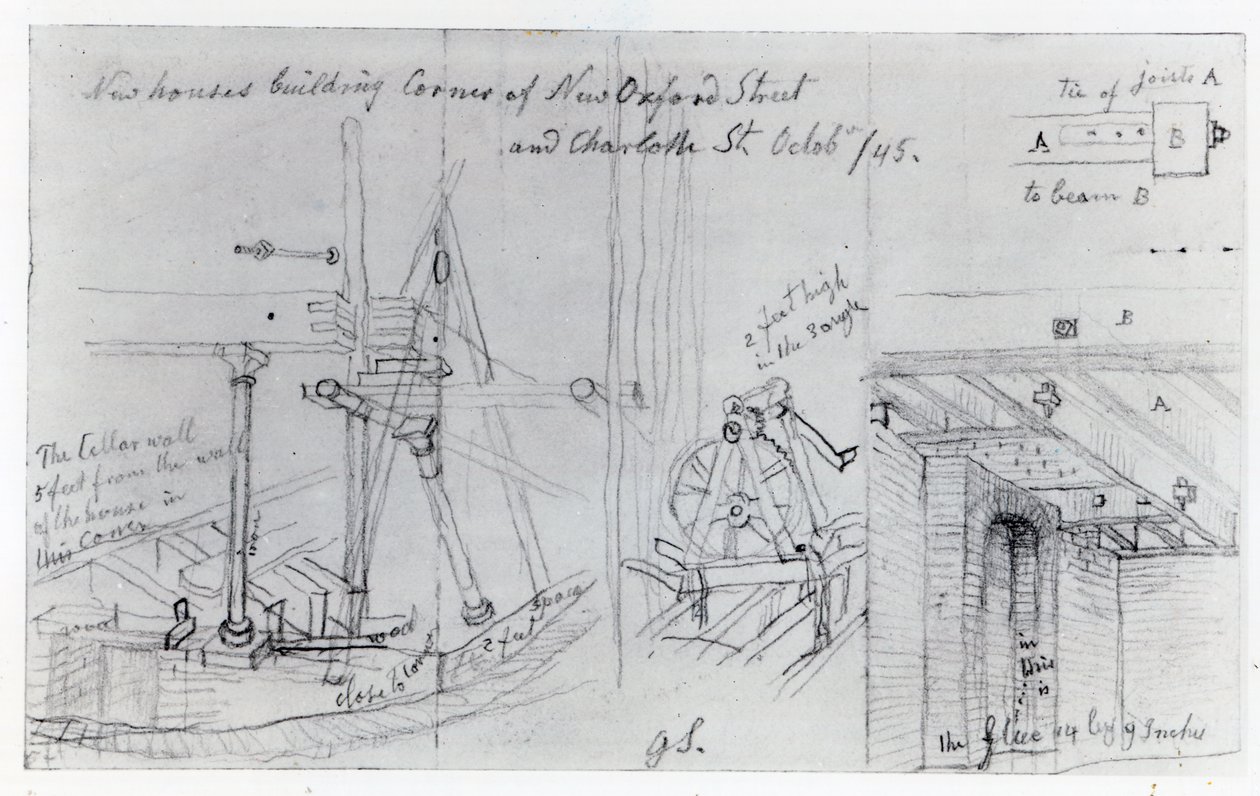 New houses building Corner of New Oxford Street
and Charlotte St. Octob^r /45.
tie of joists A
A
B
to beam B
2 feet high
in the 3 angle
B
A
The Cellar wall
5 feet from the wall
of the house in
this Corner
iron
wood
wood
close to corner
2 feet space
in
this
is
the flue 14 by 9 Inches
G S.